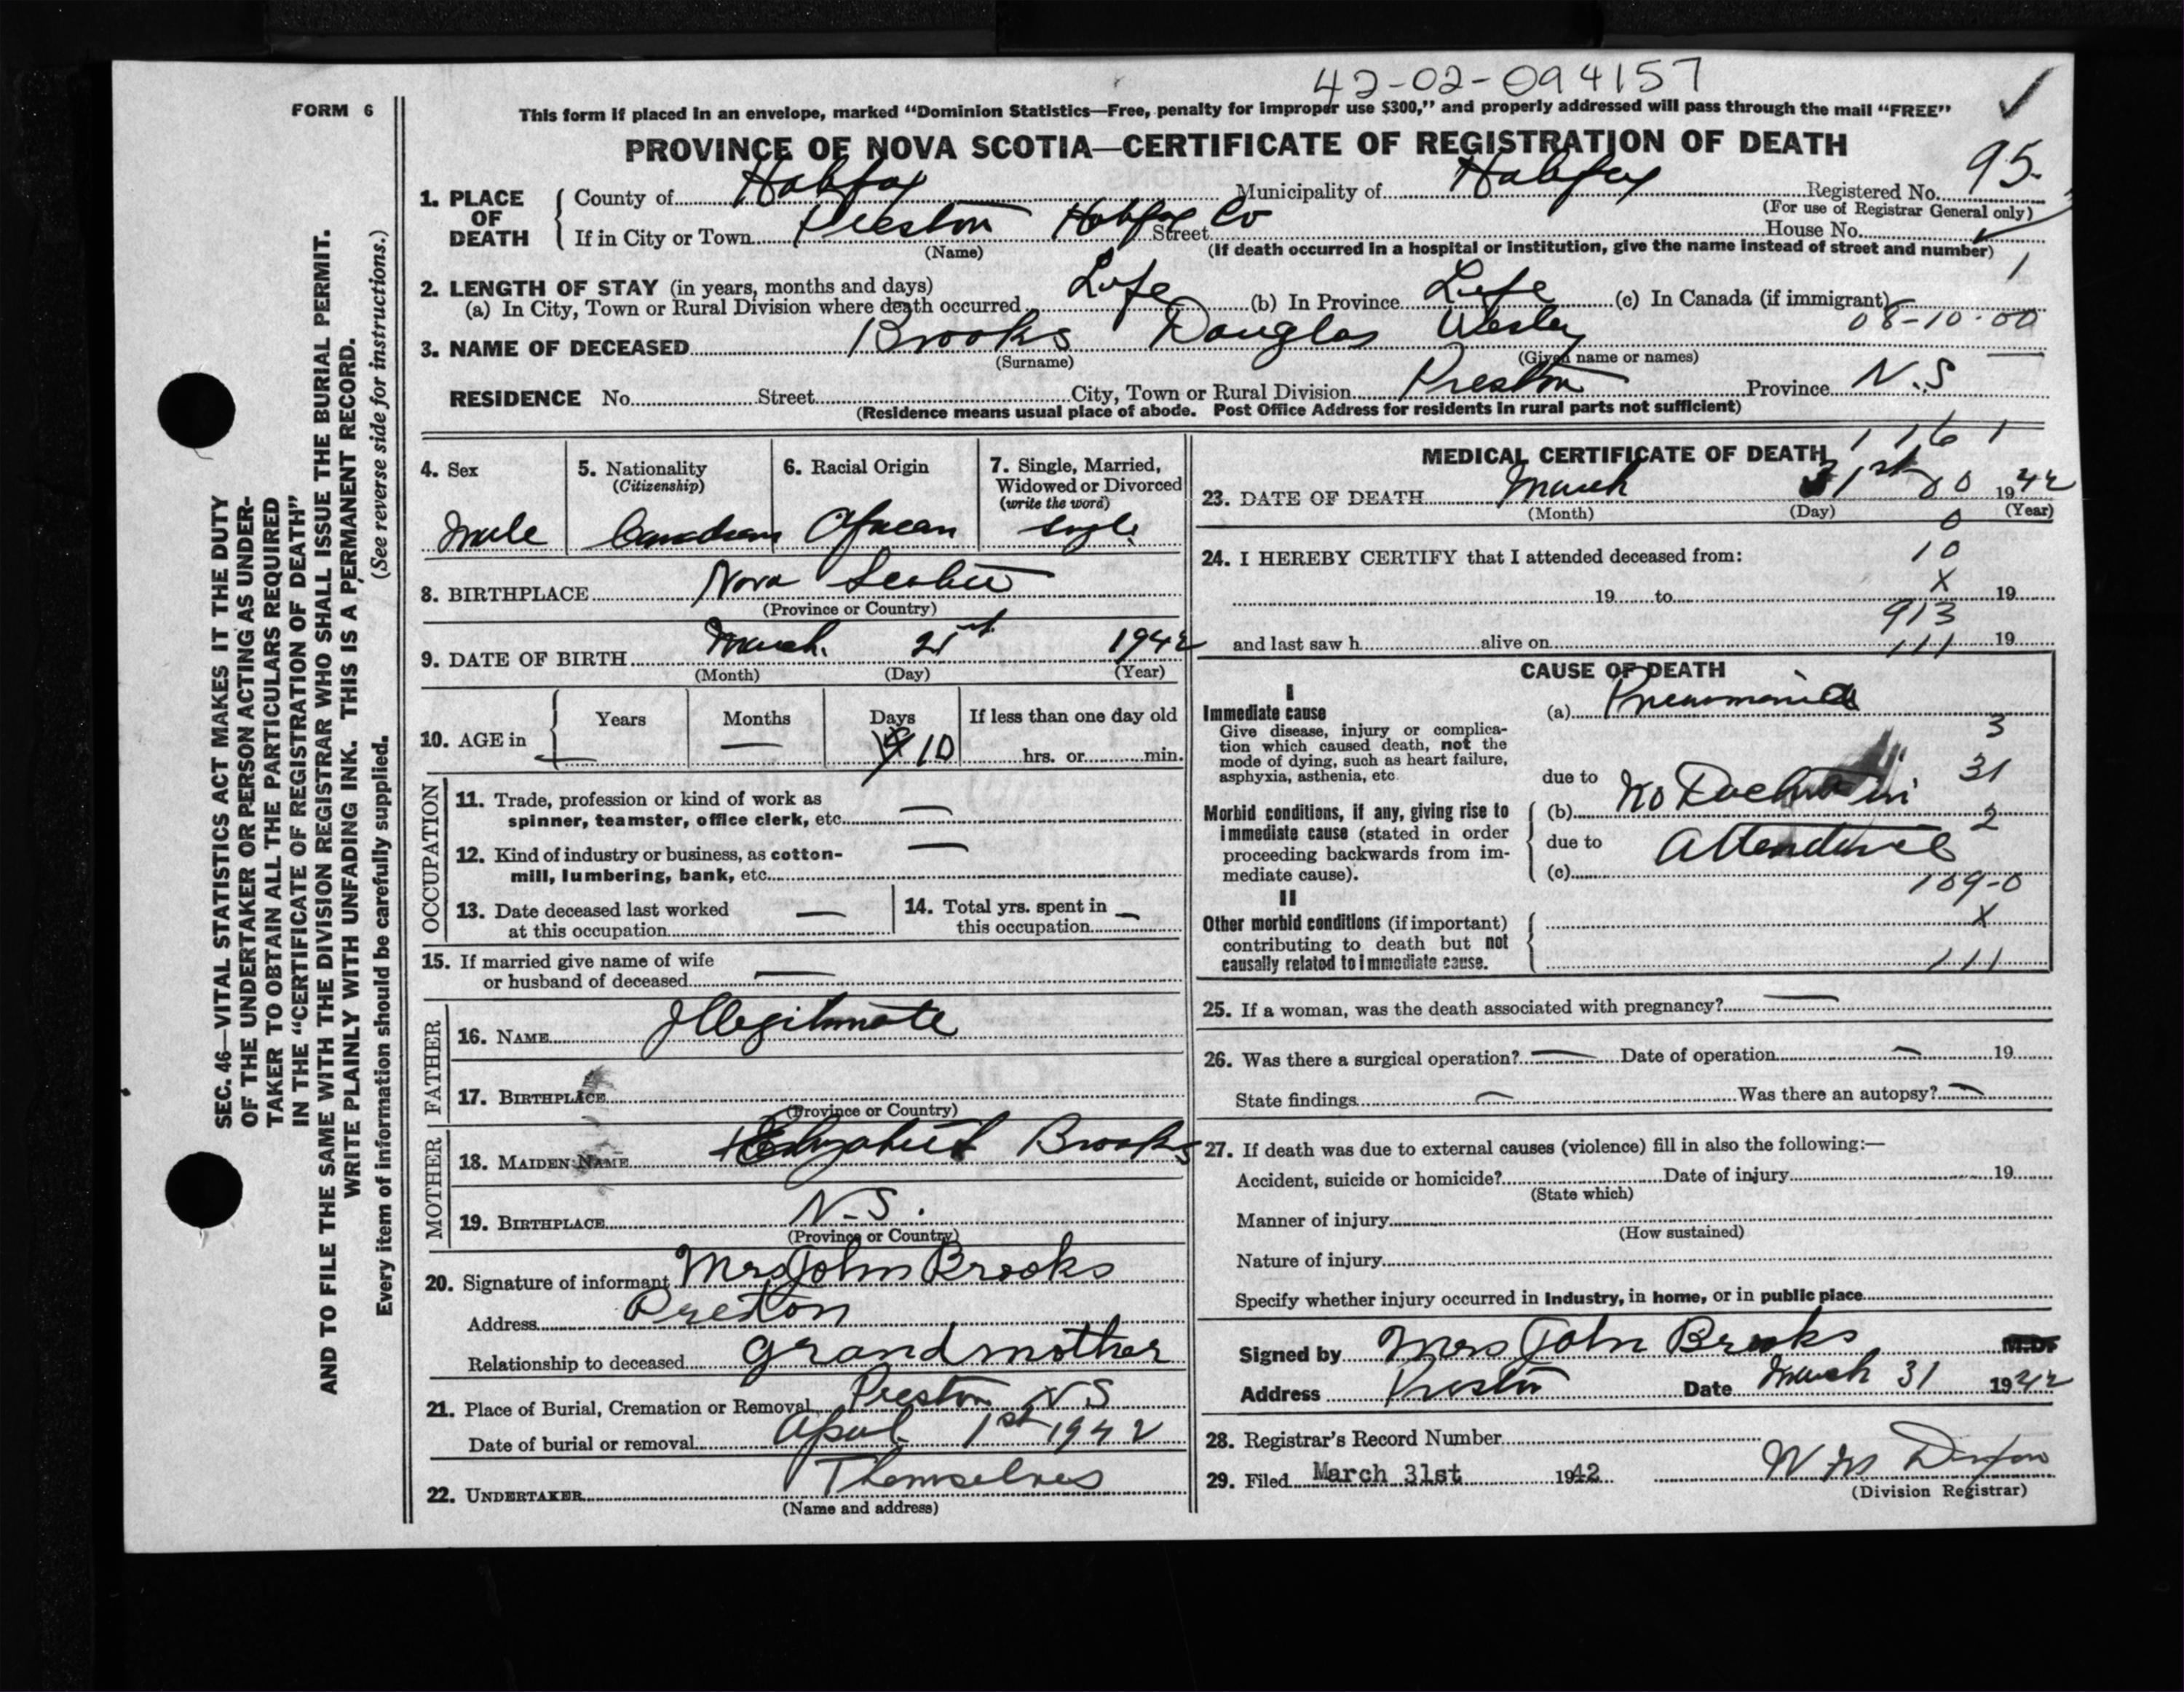 42-02-094157
FORM 6
This form if placed in an envelope, marked “Dominion Statistics—Free, penalty for improper use $300,” and properly addressed will pass through the mail “FREE”
PROVINCE OF NOVA SCOTIA—CERTIFICATE OF REGISTRATION OF DEATH
1. PLACE OF DEATH
County of Halifax Municipality of Halifax Registered No. 95.
(For use of Registrar General only)
If in City or Town Preston Halifax Co Street House No.
(Name) (If death occurred in a hospital or institution, give the name instead of street and number)
1
2. LENGTH OF STAY (in years, months and days)
(a) In City, Town or Rural Division where death occurred Life (b) In Province Life (c) In Canada (if immigrant) —
08-10-00
3. NAME OF DECEASED Brooks Douglas Wesley
(Surname) (Given name or names)
RESIDENCE No. Street City, Town or Rural Division Preston Province N.S
(Residence means usual place of abode. Post Office Address for residents in rural parts not sufficient)
4. Sex
Male
5. Nationality
(Citizenship)
Canadian
6. Racial Origin
African
7. Single, Married,
Widowed or Divorced
(write the word)
Single
8. BIRTHPLACE Nova Scotia
(Province or Country)
9. DATE OF BIRTH March 21st 1942
(Month) (Day) (Year)
10. AGE in
Years Months Days If less than one day old
— — 10 hrs. or min.
OCCUPATION
11. Trade, profession or kind of work as
spinner, teamster, office clerk, etc. —
12. Kind of industry or business, as cotton-
mill, lumbering, bank, etc. —
13. Date deceased last worked
at this occupation —
14. Total yrs. spent in
this occupation —
15. If married give name of wife
or husband of deceased —
FATHER
16. NAME Illegitimate
17. BIRTHPLACE
(Province or Country)
MOTHER
18. MAIDEN NAME Elizabeth Brooks
19. BIRTHPLACE N.S.
(Province or Country)
20. Signature of informant Mrs John Brooks
Address Preston
Relationship to deceased grandmother
21. Place of Burial, Cremation or Removal Preston NS
Date of burial or removal April 1st 1942
22. UNDERTAKER Themselves
(Name and address)
MEDICAL CERTIFICATE OF DEATH
1161
23. DATE OF DEATH March 31st 00 1942
(Month) (Day) (Year)
0
24. I HEREBY CERTIFY that I attended deceased from:
10
X
19 to 19
913
and last saw h alive on 19
111
CAUSE OF DEATH
I
Immediate cause
Give disease, injury or complica-
tion which caused death, not the
mode of dying, such as heart failure,
asphyxia, asthenia, etc.
(a) Pneumonia
3
due to
31
Morbid conditions, if any, giving rise to
immediate cause (stated in order
proceeding backwards from im-
mediate cause).
(b) No Doctor in
2
due to
Attendance
(c)
109-0
II
Other morbid conditions (if important)
contributing to death but not
causally related to immediate cause.
X
111
25. If a woman, was the death associated with pregnancy? —
26. Was there a surgical operation? — Date of operation — 19
State findings — Was there an autopsy? —
27. If death was due to external causes (violence) fill in also the following:—
Accident, suicide or homicide? Date of injury 19
(State which)
Manner of injury
(How sustained)
Nature of injury
Specify whether injury occurred in Industry, in home, or in public place
Signed by Mrs John Brooks M.D.
Address Preston Date March 31 1942
28. Registrar's Record Number
29. Filed March 31st 1942
(Division Registrar)
SEC. 46—VITAL STATISTICS ACT MAKES IT THE DUTY
OF THE UNDERTAKER OR PERSON ACTING AS UNDER-
TAKER TO OBTAIN ALL THE PARTICULARS REQUIRED
IN THE “CERTIFICATE OF REGISTRATION OF DEATH”
AND TO FILE THE SAME WITH THE DIVISION REGISTRAR WHO SHALL ISSUE THE BURIAL PERMIT.
WRITE PLAINLY WITH UNFADING INK. THIS IS A PERMANENT RECORD.
Every item of information should be carefully supplied. (See reverse side for instructions.)